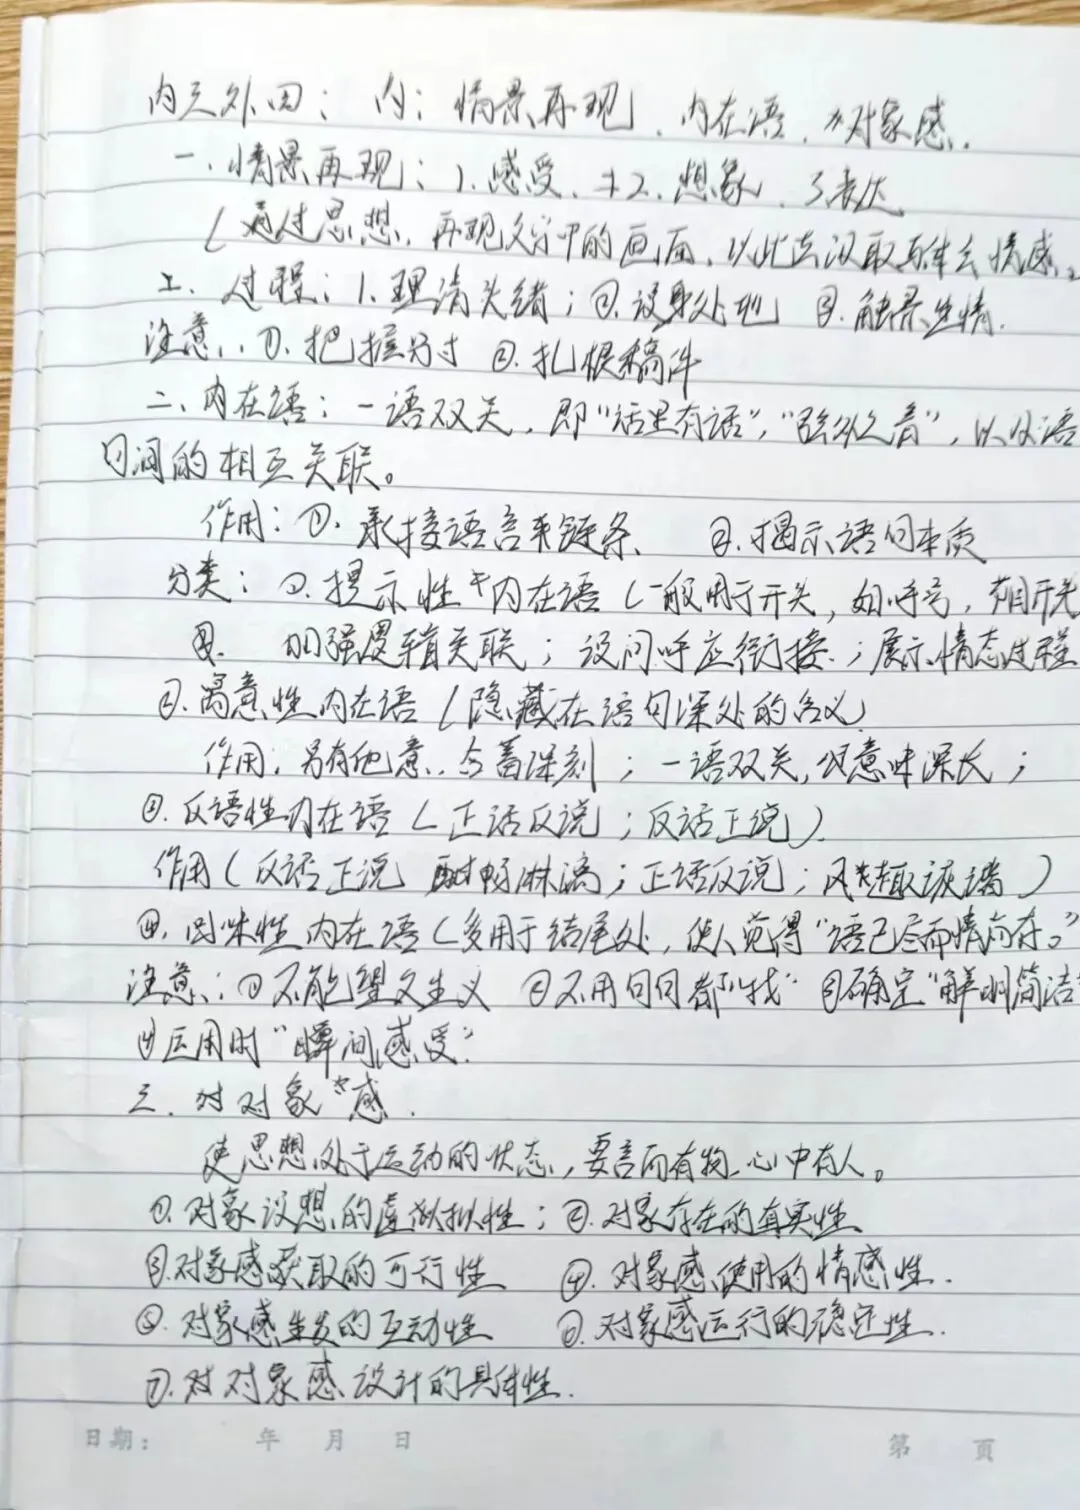 内三外四：内：情景再现、内在语、对象感.
一、情景再现：1.感受、2.想象、3表达
(通过思想，再现文字中的画面，以此去汲取与体会情感。
过程：1.理清头绪；②.设身处地 ③.触景生情.
注意：①.把握分寸 ②.扎根稿件
二、内在语：一语双关，即“话里有话”，“弦外之音”，以及语
句间的相互关联。
作用：①.承接语言链条、 ②.揭示语句本质
分类：①.提示性内在语(一般用于开头，如呼号，开头
加强逻辑关联；设问呼应衔接；展示情态过程
②.寓意性内在语(隐藏在语句深处的含义
作用：另有他意、含蓄深刻；一语双关，意味深长；
③.反语性内在语(正话反说；反话正说)
作用(反话正说 酣畅淋漓；正话反说；风趣诙谐)
④.回味性内在语(多用于结尾处，使人觉得“语已尽而情尚存。”
注意：①不能望文生义 ②不用句句都“找” ③确定“解明简洁
④运用时“瞬间感受”
三.对对象感.
使思想处于运动的状态，要言而有物、心中有人。
①.对象设想的虚拟性；②.对象存在的真实性
③.对象感获取的可行性 ④.对象感使用的情感性.
⑤.对象感生发的互动性 ⑥.对象感运行的稳定性.
⑦.对对象感设计的具体性.
日期： 年 月 日 第 页